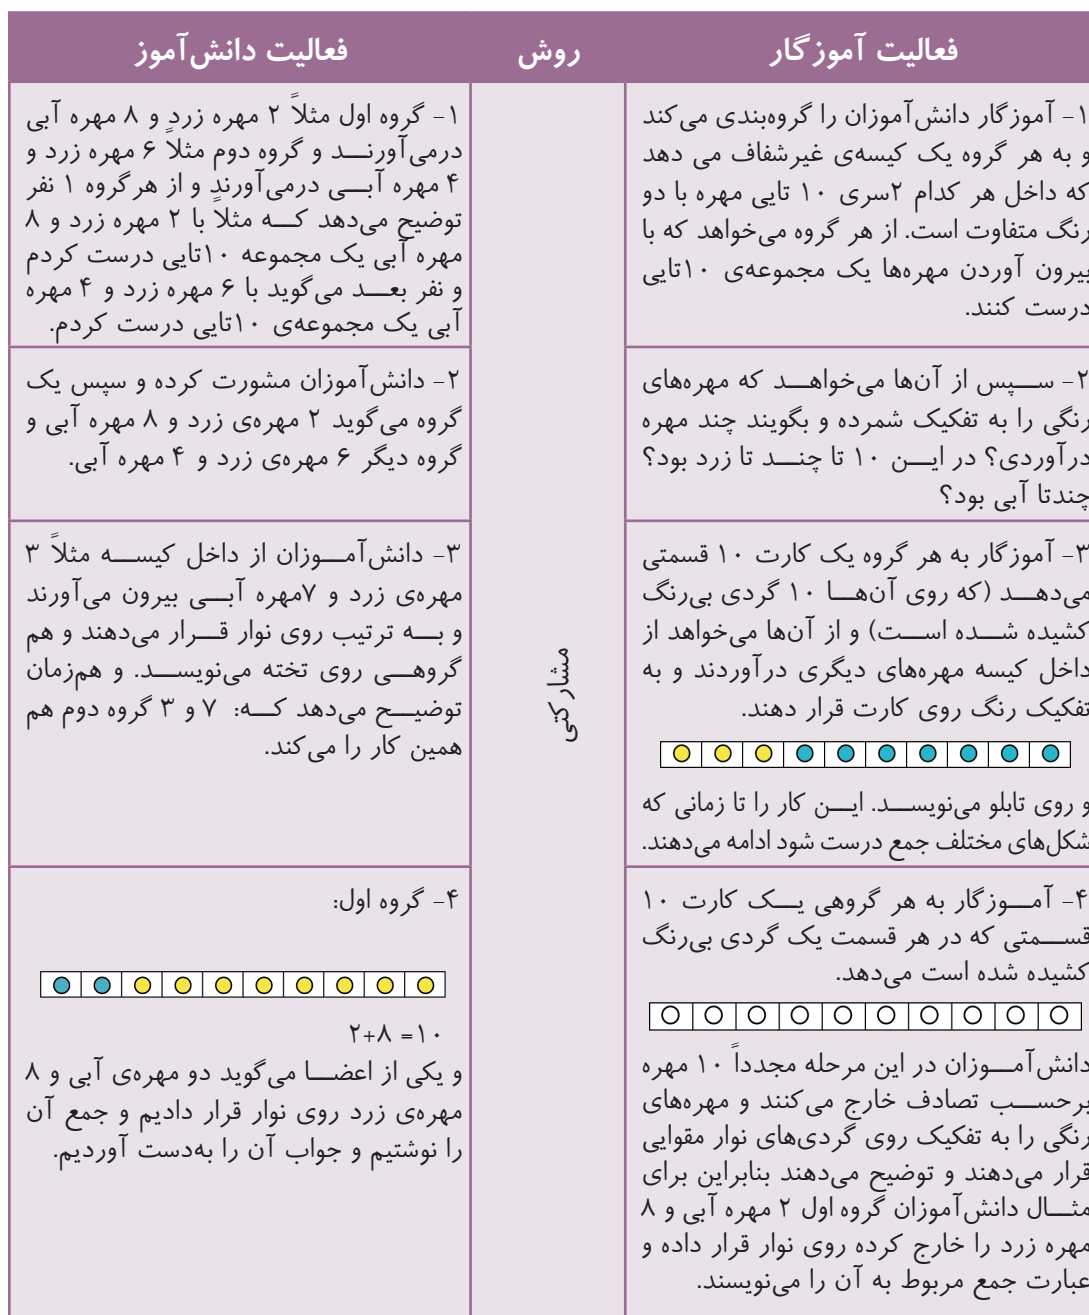 فعالیت آموزگار
روش
فعالیت دانش‌آموز
۱- آموزگار دانش‌آموزان را گروه‌بندی می‌کند
و به هر گروه یک کیسه‌ی غیرشفاف می دهد
که داخل هر کدام ۲سری ۱۰ تایی مهره با دو
رنگ متفاوت است. از هر گروه می‌خواهد که با
بیرون آوردن مهره‌ها یک مجموعه‌ی ۱۰تایی
درست کنند.
مشارکتی
۱- گروه اول مثلاً ۲ مهره زرد و ۸ مهره آبی
درمی‌آورنــد و گروه دوم مثلاً ۶ مهره زرد و
۴ مهره آبــی درمی‌آورند و از هرگروه ۱ نفر
توضیح می‌دهد کــه مثلاً با ۲ مهره زرد و ۸
مهره آبی یک مجموعه ۱۰تایی درست کردم
و نفر بعــد می‌گوید با ۶ مهره زرد و ۴ مهره
آبی یک مجموعه‌ی ۱۰تایی درست کردم.
۲- ســپس از آن‌ها می‌خواهــد که مهره‌های
رنگی را به تفکیک شمرده و بگویند چند مهره
درآوردی؟ در ایــن ۱۰ تا چنــد تا زرد بود؟
چندتا آبی بود؟
۲- دانش‌آموزان مشورت کرده و سپس یک
گروه می‌گوید ۲ مهره‌ی زرد و ۸ مهره آبی و
گروه دیگر ۶ مهره‌ی زرد و ۴ مهره آبی.
۳- آموزگار به هر گروه یک کارت ۱۰ قسمتی
می‌دهــد (که روی آن‌هــا ۱۰ گردی بی‌رنگ
کشیده شــده اســت) و از آن‌ها می‌خواهد از
داخل کیسه مهره‌های دیگری درآوردند و به
تفکیک رنگ روی کارت قرار دهند.
و روی تابلو می‌نویســد. ایــن کار را تا زمانی که
شکل‌های مختلف جمع درست شود ادامه می‌دهند.
۳- دانش‌آمــوزان از داخل کیســه مثلاً ۳
مهره‌ی زرد و ۷مهره آبــی بیرون می‌آورند
و بــه ترتیب روی نوار قــرار می‌دهند و هم
گروهــی روی تخته می‌نویســد. و هم‌زمان
توضیــح می‌دهد کــه: ۷ و ۳ گروه دوم هم
همین کار را می‌کند.
۴- آمــوزگار به هر گروهی یــک کارت ۱۰
قســمتی که در هر قسمت یک گردی بی‌رنگ
کشیده شده است می‌دهد.
دانش‌آمــوزان در این مرحله مجدداً ۱۰ مهره
برحســب تصادف خارج می‌کنند و مهره‌های
رنگی را به تفکیک روی گردی‌های نوار مقوایی
قرار می‌دهند و توضیح می‌دهند بنابراین برای
مثــال دانش‌آموزان گروه اول ۲ مهره آبی و ۸
مهره زرد را خارج کرده روی نوار قرار داده و
عبارت جمع مربوط به آن را می‌نویسند.
۴- گروه اول:
۲+۸ =۱۰
و یکی از اعضــا می‌گوید دو مهره‌ی آبی و ۸
مهره‌ی زرد روی نوار قرار دادیم و جمع آن
را نوشتیم و جواب آن را به‌دست آوردیم.